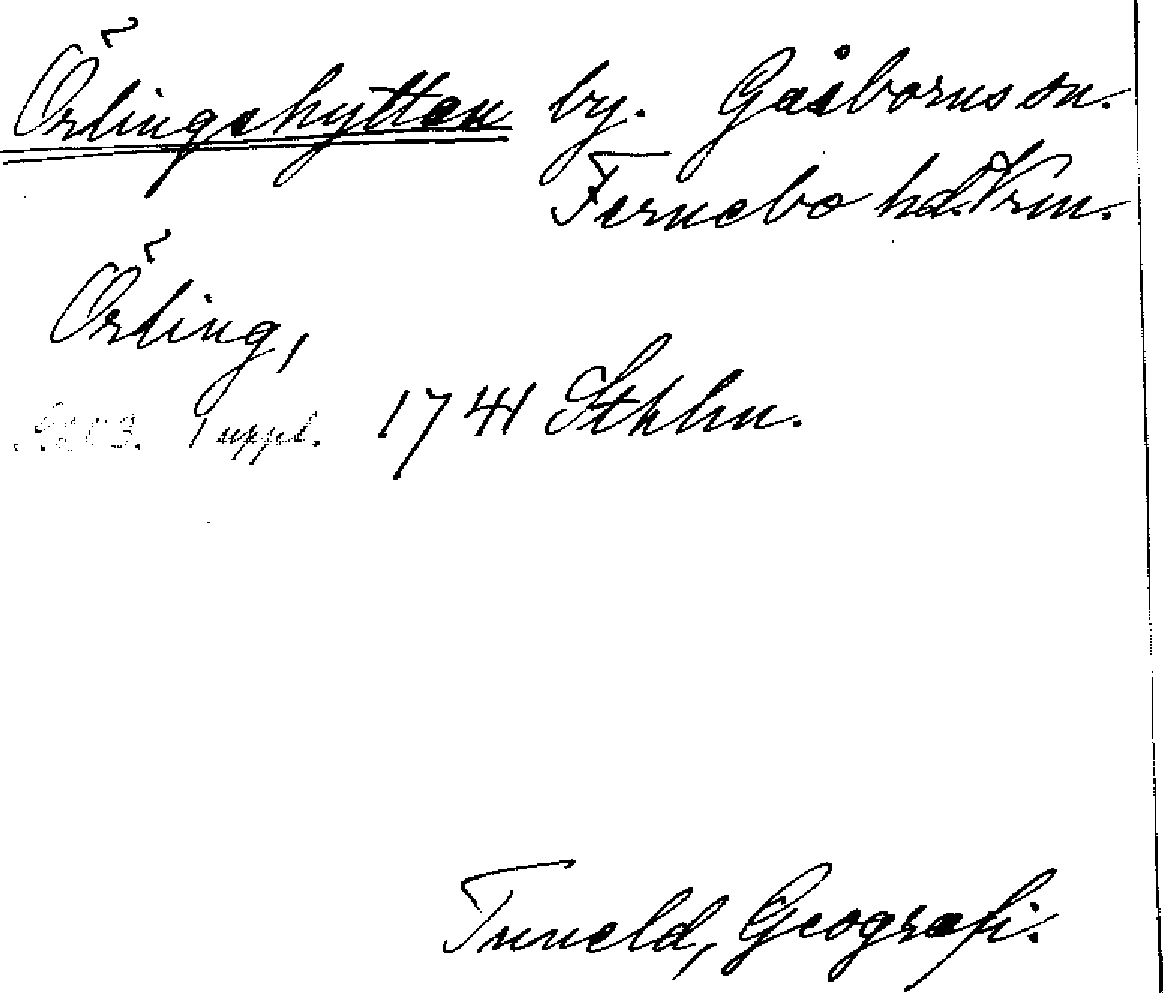 Örlingshyttan by. Gåsborns sn.
Fernebo hd. Vrm.
Örling,
Suppl. 1741 Sthlm.
Tuneld, Geografi.